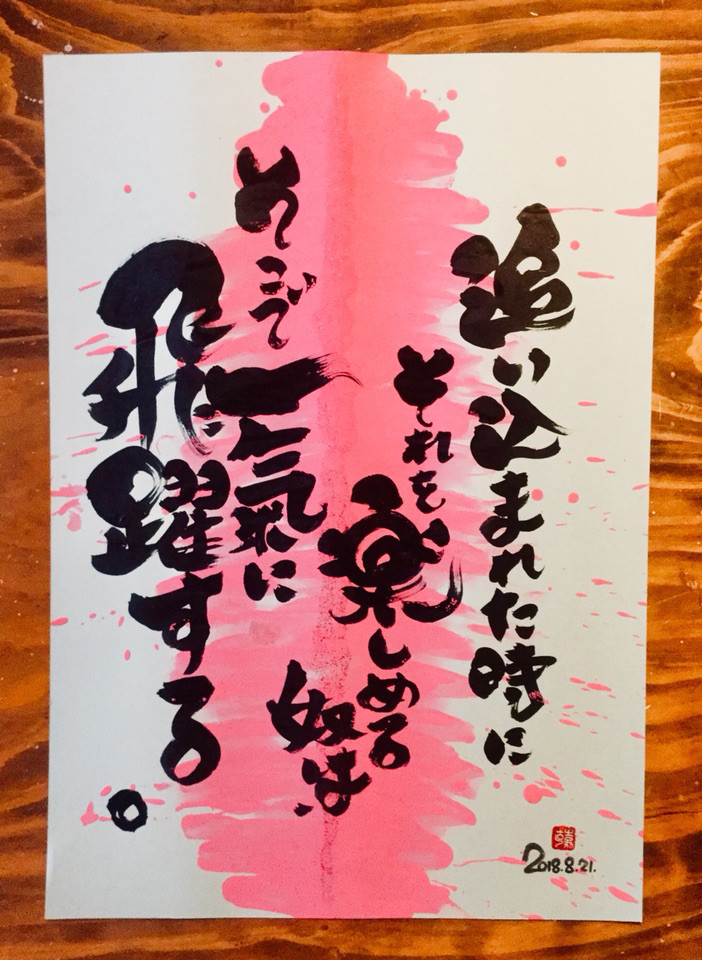 追い込まれた時に
それを楽しめる
奴は
そこで一気に
飛躍する。
2018.8.21.